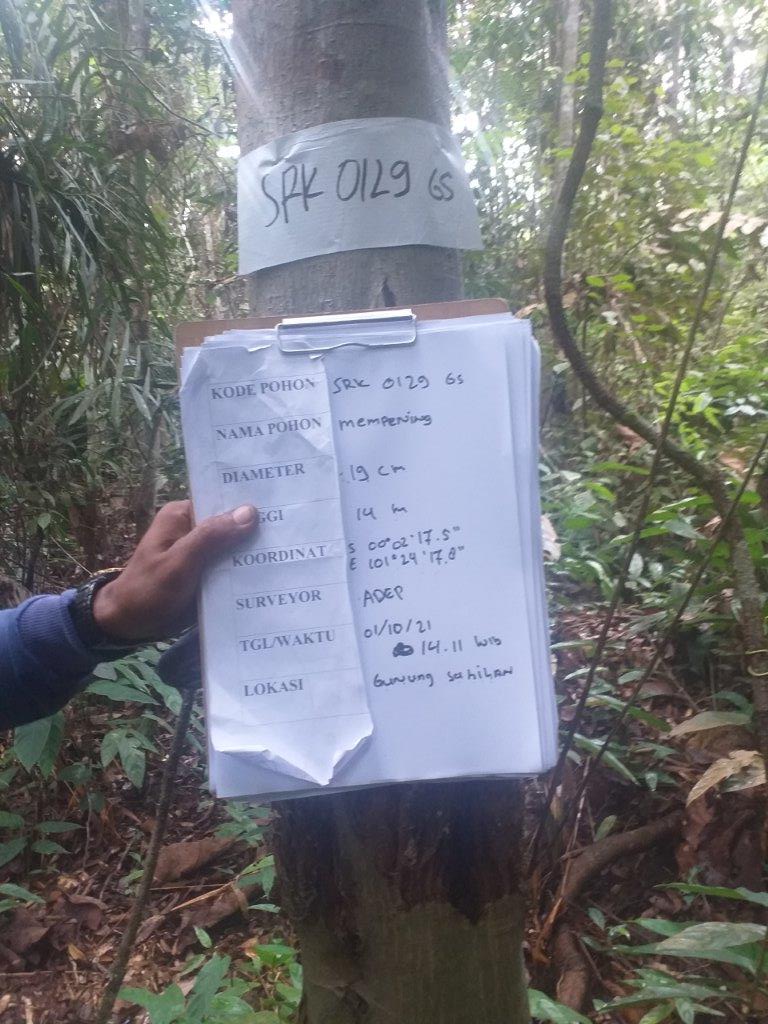 SRK 0129 GS
KODE POHON SRK 0129 GS
NAMA POHON mempening
DIAMETER 19 cm
GGI 14 m
KOORDINAT S 00°02'17.5"
E 101°24'17.8"
SURVEYOR ADEP
TGL/WAKTU 01/10/21
14.11 WIB
LOKASI Gunung Sahilan